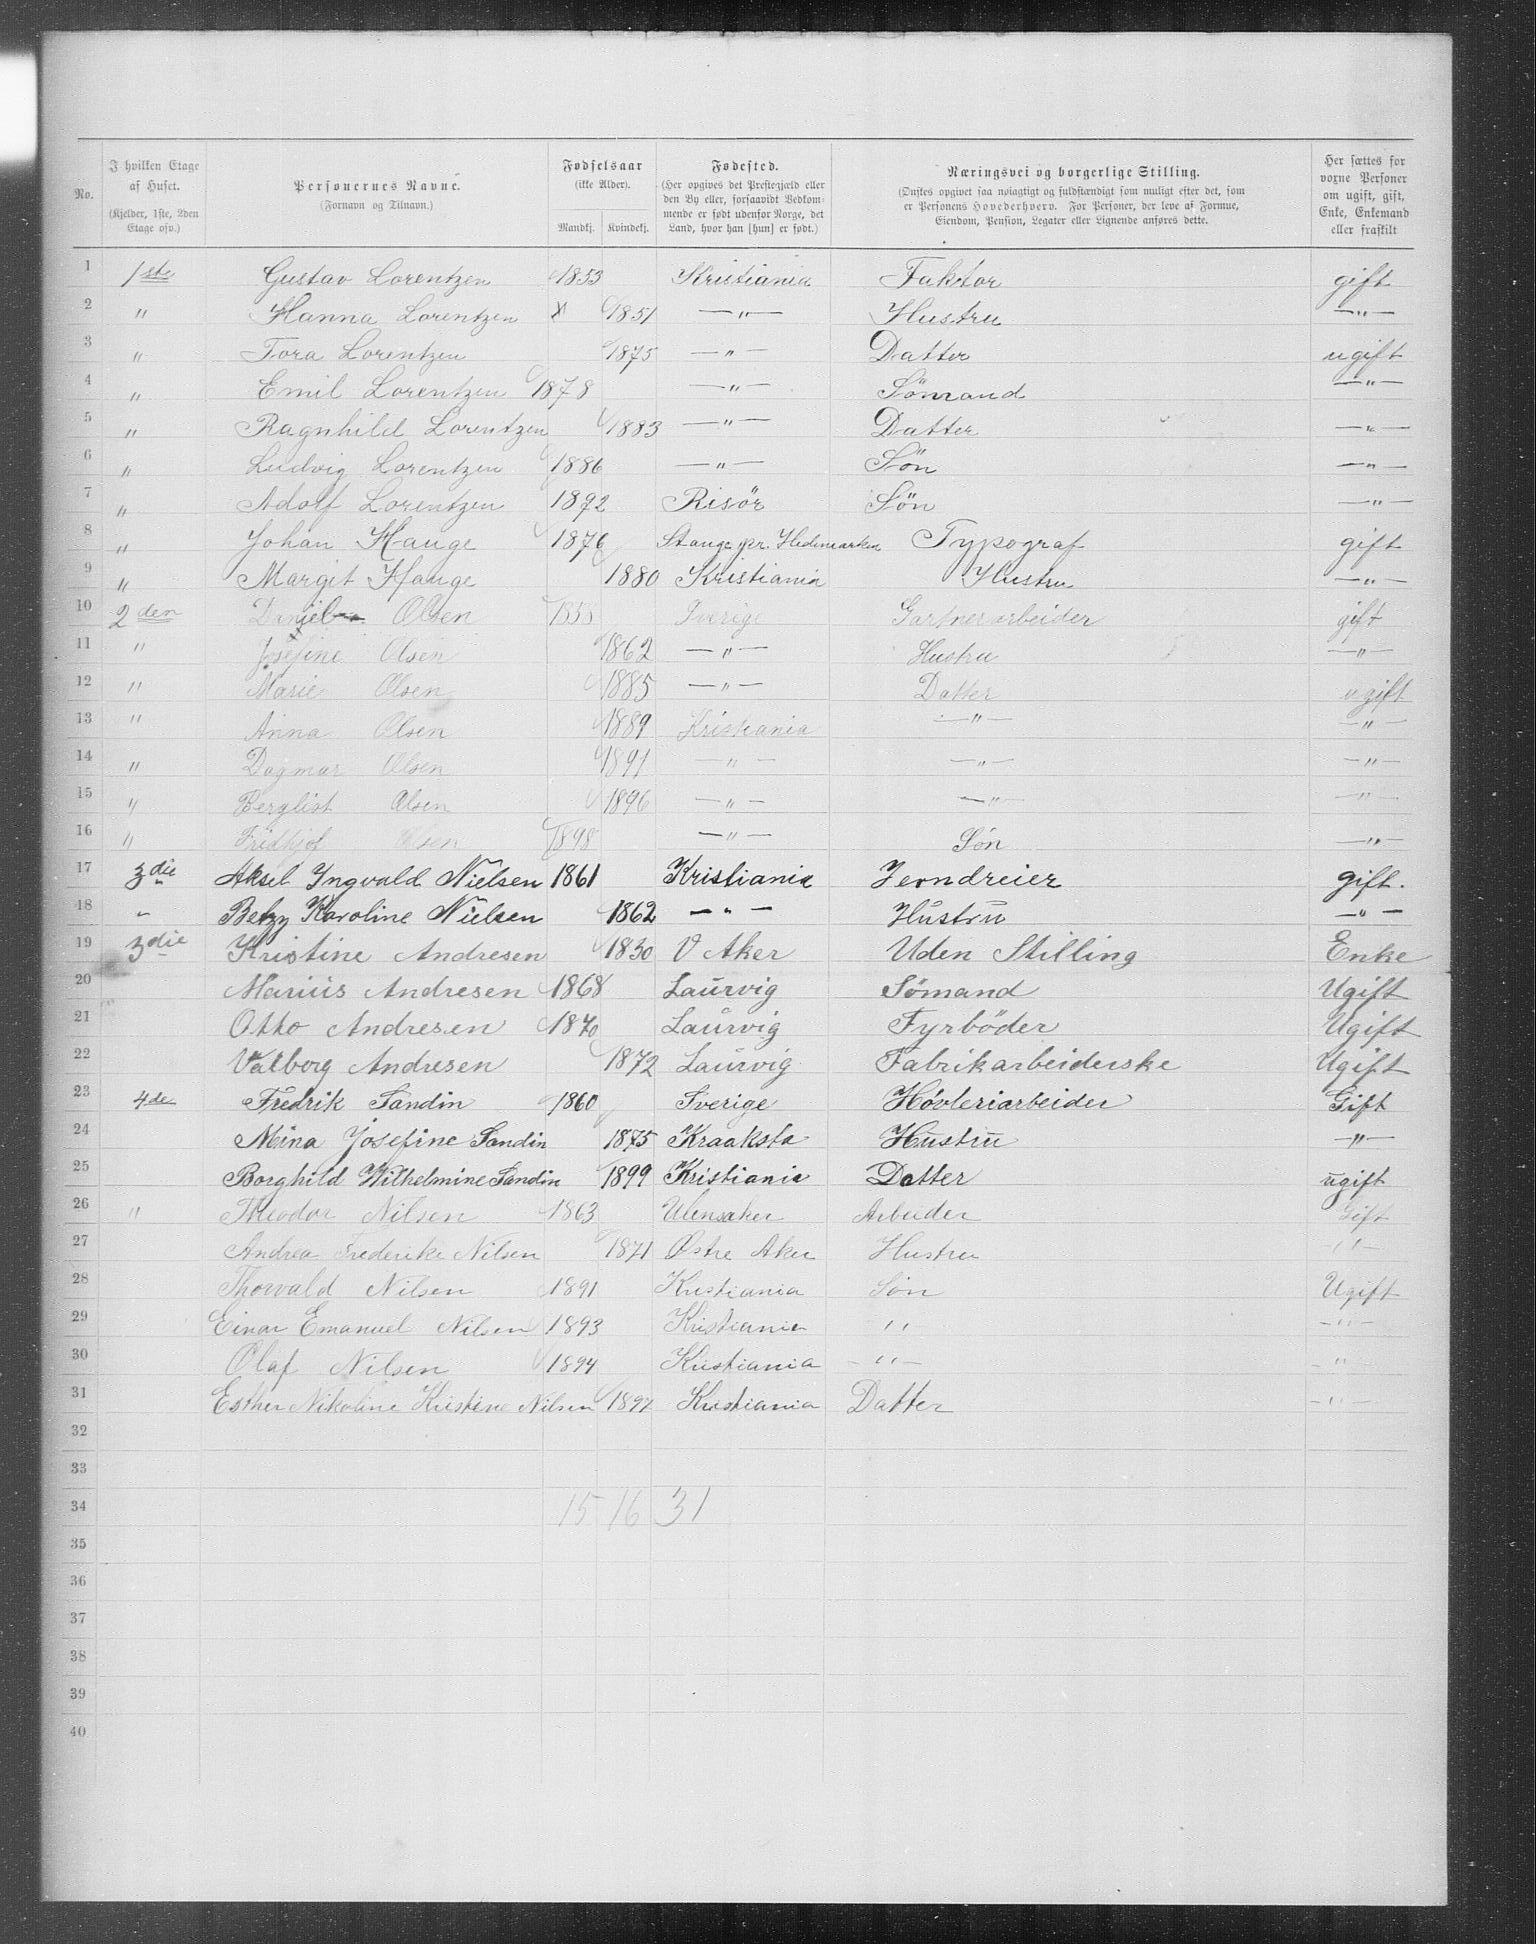 No. | I hvilken Etage af Huset. (Kjelder, 1ste, 2den Etage osv.) | Personernes Navne. (Fornavn og Tilnavn.) | Fødselsaar (ikke Alder). Mandkj. Kvindekj. | Fødested. (Her opgives det Prestegjæld eller den By eller, forsaavidt Vedkommende er født udenfor Norge, det Land, hvor han [hun] er født.) | Næringsvei og borgerlige Stilling. (Ønskes opgivet saa nøiagtigt og fuldstændigt som muligt efter det, som er Personens Hovederhverv. For Personer, der leve af Formue, Eiendom, Pension, Legater eller Lignende anføres dette. | Her sættes for voxne Personer om ugift, gift, Enke, Enkemand eller fraskilt
1 1ste Gustav Lorentzen 1853 Kristiania Faktor gift
2 " Hanna Lorentzen x 1851 —"— Hustru —"—
3 " Tora Lorentzen 1875 —"— Datter ugift
4 " Emil Lorentzen 1878 —"— Sömand —"—
5 " Ragnhild Lorentzen 1883 —"— Datter —"—
6 " Ludvig Lorentzen 1886 —"— Sön —"—
7 " Adolf Lorentzen 1892 Risör Sön —"—
8 " Johan Hauge 1876 Stange pr. Hedemarken Typograf gift
9 " Margit Hauge 1880 Kristiania Hustru —"—
10 2den Daniel Olsen Sverige Gartnerarbeider gift
11 " Josefine Olsen 1862 —"— Hustru —"—
12 " Marie Olsen 1885 —"— Datter ugift
13 " Anna Olsen 1889 Kristiania —"— —"—
14 " Dagmar Olsen 1891 —"— —"— —"—
15 " Berglist Olsen 1896 —"— —"— —"—
16 " Fridhjof Olsen 1898 —"— Søn —"—
17 3die Aksel Yngvald Nielsen 1861 Kristiania Jerndreier gift.
18 " Betzy Karoline Nielsen 1862 —"— Hustru —"—
19 3die Kristine Andresen 1830 V Aker Uden Stilling Enke
20 Marius Andresen 1868 Laurvig Sömand Ugift
21 Otto Andresen 1870 Laurvig Fyrböder Ugift
22 Valborg Andresen 1872 Laurvig Fabrikarbeiderske Ugift
23 4de Fredrik Sandin 1860 Sverige Høvleriarbeider Gift
24 Mina Josefine Sandin 1875 Kraaksta Hustru —"—
25 Borghild Wilhelmine Sandin 1899 Kristiania Datter ugift
26 " Theodor Nilsen 1863 Ulensaker Arbeider Gift
27 Andrea Frederike Nilsen 1871 Østre Aker Hustru "
28 Thorvald Nilsen 1891 Kristiania Søn Ugift
29 Einar Emanuel Nilsen 1893 Kristiania " —"—
30 Olaf Nilsen 1894 Kristiania —"— —"
31 Esther Nikoline Kristine Nilsen 1897 Kristiania Datter —"—
32
33
34 15 16 31
35
36
37
38
39
40